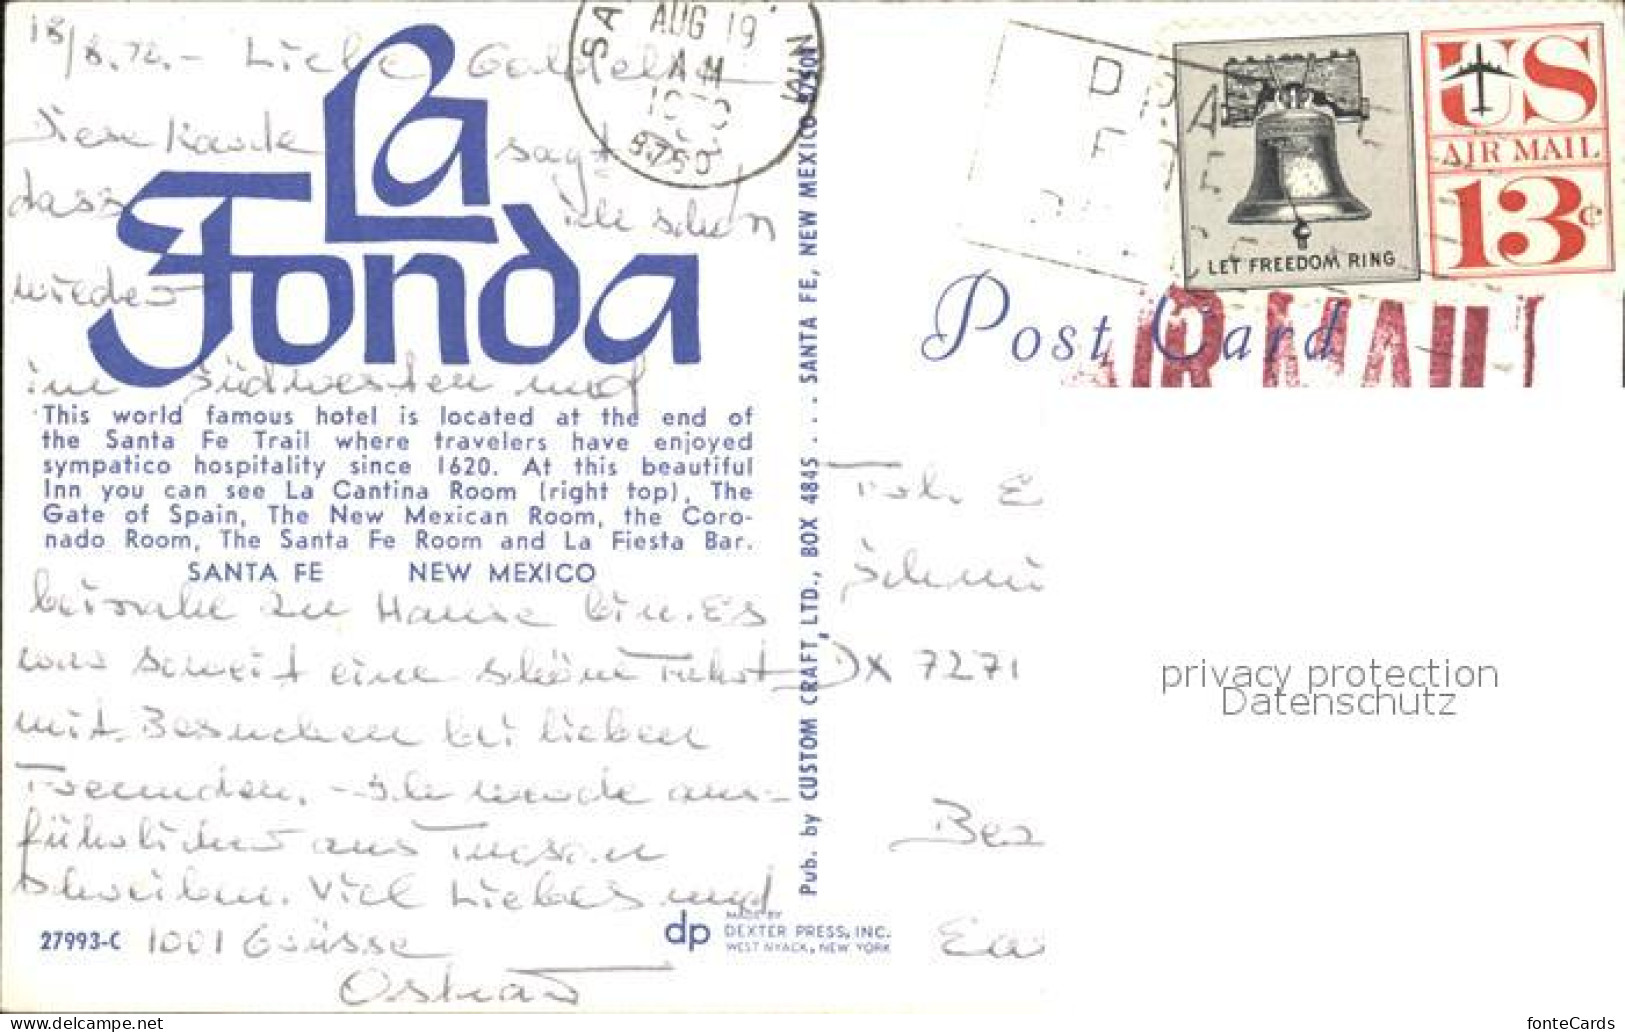 18/8.72.- Liebe
Diese Karte sagt
dass ich schon
wieder
im Südwesten und
beinahe zu Hause bin. Es
war soweit eine schöne Fahrt
mit Besuchen bei lieben
Freunden. - Ich werde aus-
führlicher aus Tucson
schreiben. Viel Liebes und
1001 Grüsse
La
Fonda
This world famous hotel is located at the end of
the Santa Fe Trail where travelers have enjoyed
sympatico hospitality since 1620. At this beautiful
Inn you can see La Cantina Room (right top), The
Gate of Spain, The New Mexican Room, the Coro-
nado Room, The Santa Fe Room and La Fiesta Bar.
SANTA FE NEW MEXICO
27993-C
dp
MADE BY
DEXTER PRESS, INC.
WEST NYACK, NEW YORK
Pub. by CUSTOM CRAFT, LTD., BOX 4845 . . . SANTA FE, NEW MEXICO 87501
AUG 19
AM
LET FREEDOM RING
US
AIR MAIL
13¢
Post Card
AIR MAIL
DX 7271
privacy protection
Datenschutz
fonteCards